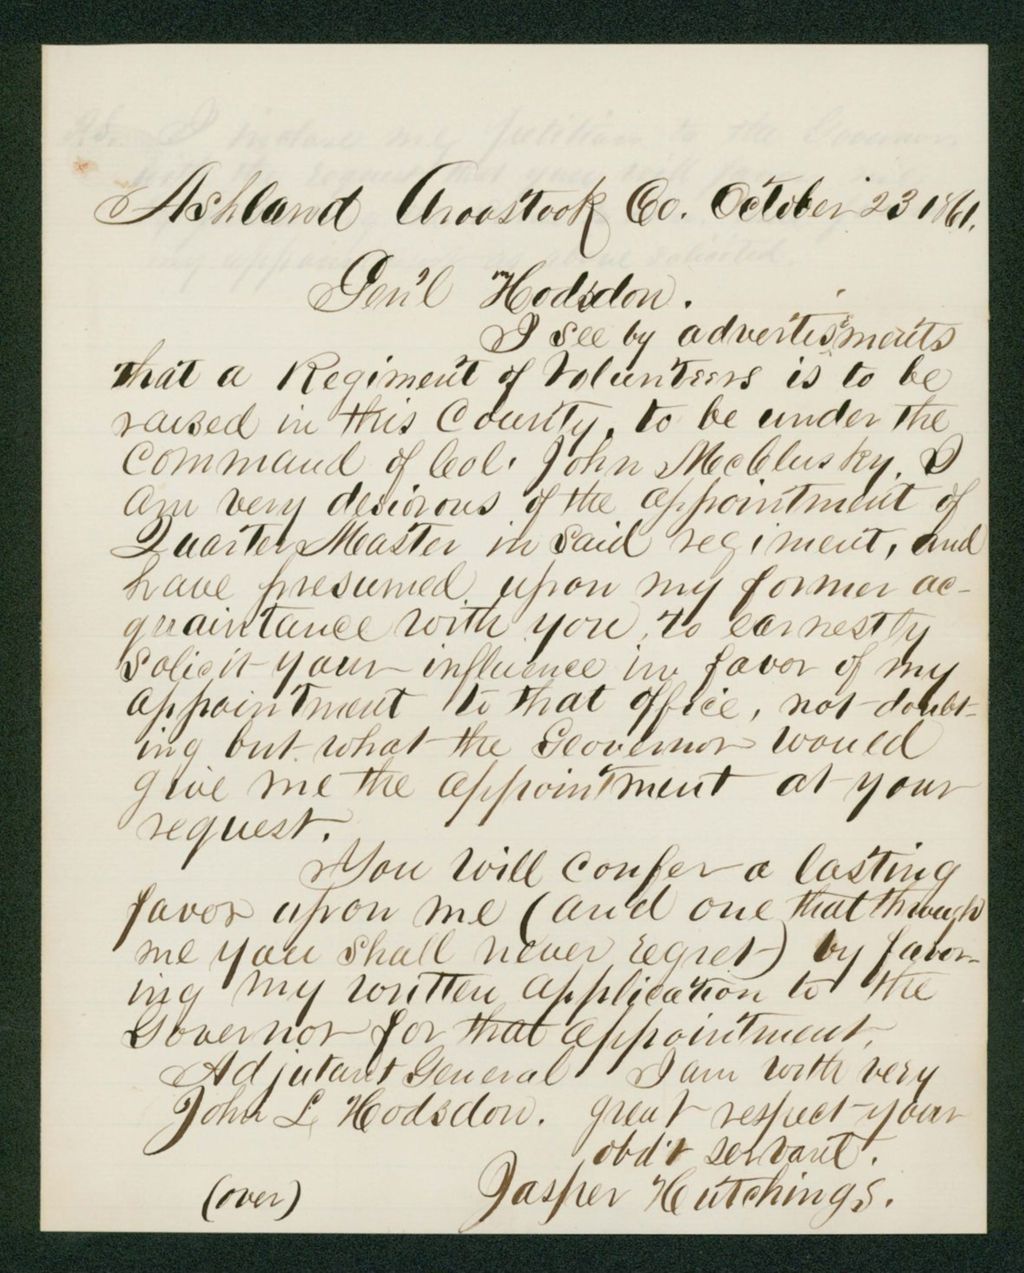 Ashland Aroostook Co. October 23 1861.
Gen'l Hodsdon.
I see by advertisments
that a Regiment of Volunteers is to be
raised in this County, to be under the
Command of Col. John McClusky. I
am very desirous of the appointment of
Quarter Master in said regiment, and
have presumed upon my former ac-
quaintance with you, to earnestly
solicit your influence in favor of my
appointment to that office, not doubt-
ing but what the Governor would
give me the appointment at your
request.
You will confer a lasting
favor upon me (and one that through
me you shall never regret) by favor-
ing my written application to the
Governor for that appointment,
Adjutant General I am with very
John L. Hodsdon. great respect your
obd't servant.
(over) Jasper Hutchings.